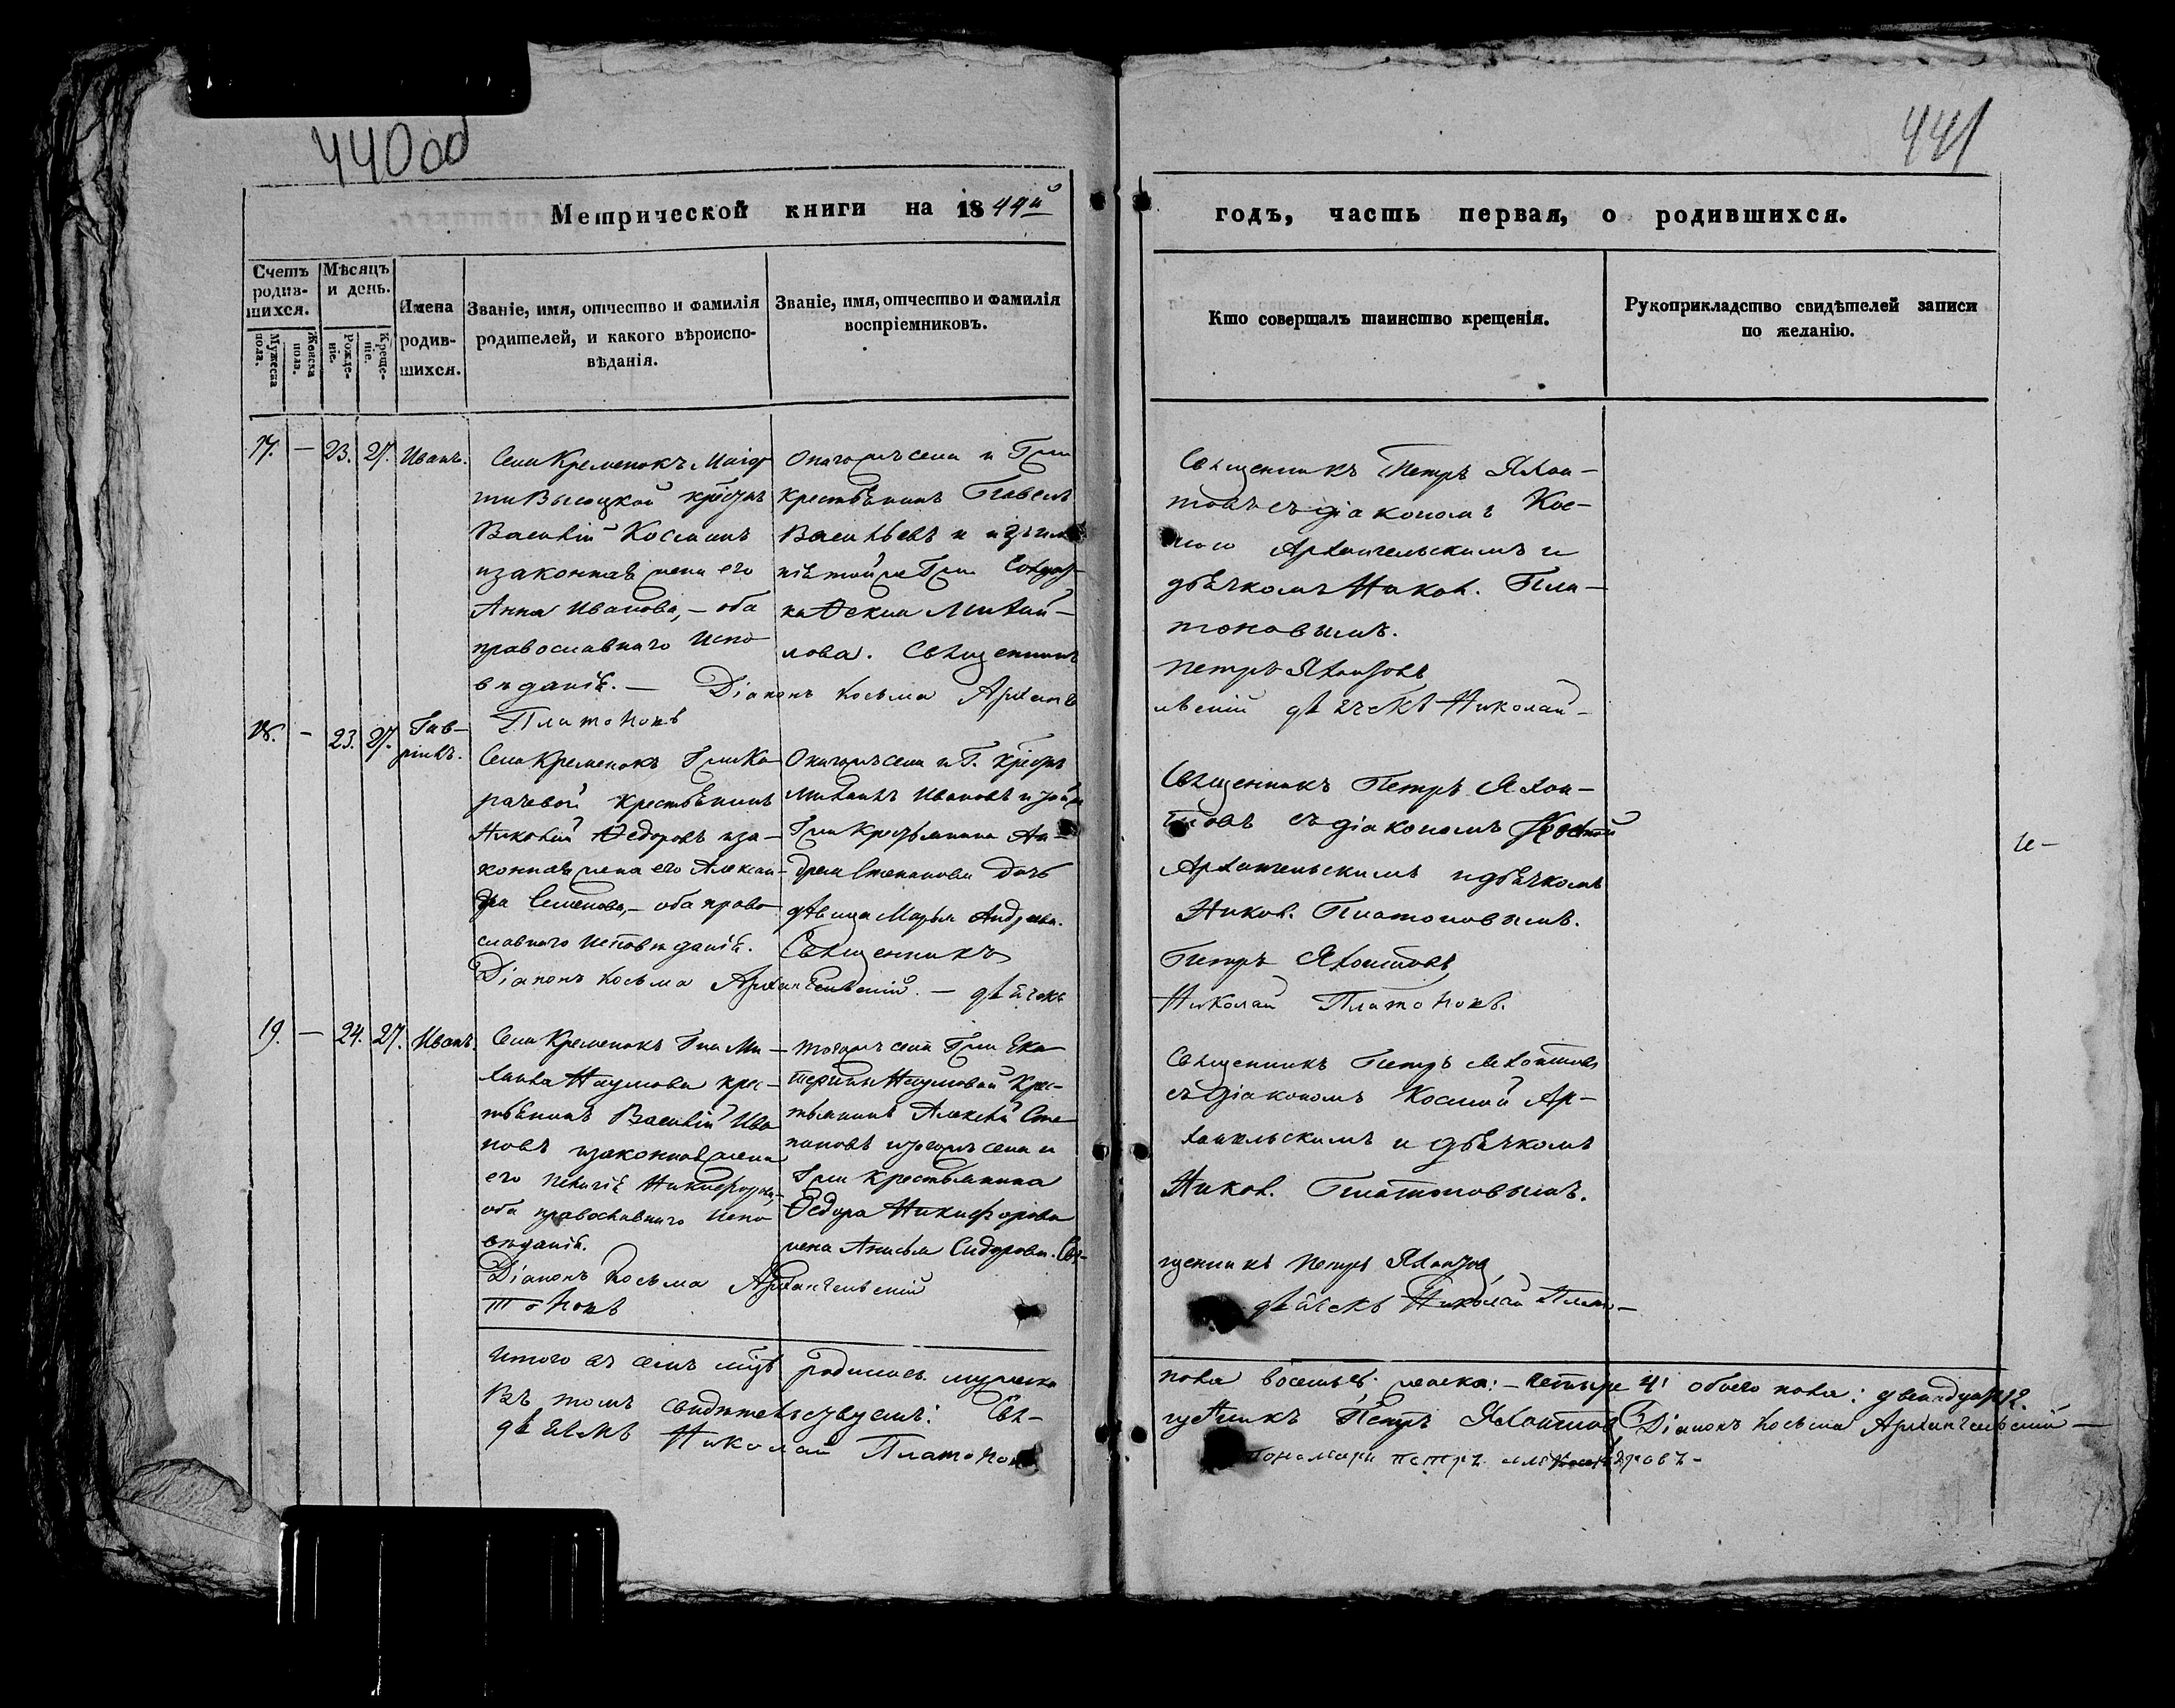 440 об
441
Метрической книги на 1844й
годъ, часть первая, о родившихся.
Счетъ родив-шихся.
Мужеска пола.
Женска пола.
Мѣсяцъ и день.
Рожде-ніе.
Креще-ніе.
Имена родив-шихся.
Званіе, имя, отчество и фамилія
родителей, и какого вѣроиспо-
вѣданія.
Званіе, имя, отчество и фамилія
воспріемниковъ.
Кто совершалъ таинство крещенія.
Рукоприкладство свидѣтелей записи
по желанію.
17. — 23. 27. Иванъ.
Села Кременокъ
Высоцкой
Василій Косминъ
и законная жена его
Анна Иванова, — оба
православнаго испо
вѣданія. —
крестьянинъ Павелъ
Васильевъ и
Михай-
лова. Священникъ
Діаконъ Косьма Архан
Платоновъ
Священникъ Петръ Яхон-
товъ съ діакономъ Кос-
мою Архангельскимъ и
дьячкомъ Никол. Пла-
тоновымъ.
Петръ Яхонтовъ
дьячекъ Николай
18. — 23. 27. Гав-
ріилъ.
Села Кременокъ
крестьянинъ
Николай Ѳедоровъ и за-
конная жена его Алексан-
дра Семенова, — оба право
славнаго исповѣданія.
Діаконъ Косьма Архангельскій. — дьячекъ
Михаилъ Ивановъ
Гжи крестьянина Ан-
дрея Степанова дочь
дѣвица Марья Андреева.
Священникъ
Священникъ Петръ Яхон-
товъ съ діакономъ Космой
Архангельскимъ и дьячкомъ
Никол. Платоновымъ.
Петръ Яхонтовъ
Николай Платоновъ.
19. — 24. 27. Иванъ.
Села Кременокъ Гна Ми-
хаила Наумова крес-
тьянинъ Василій Ива
новъ и законная жена
его Никифорова,
оба православнаго испо
вѣданія.
Діаконъ Косьма Архангельскій
тоновъ
тогожъ села Гжи Ека
терины Наумовой крес-
тьянинъ Алексѣй Сте
пановъ и тогожъ села и
Гжи крестьянина
Ѳедора Никифорова
жена Анисья Сидорова. Свя-
Священникъ Петръ Яхонтовъ
съ діакономъ Космой Ар-
хангельскимъ и дьячкомъ
Никол. Платоновымъ.
щенникъ Петръ Яхонтовъ
дьячекъ Николай Пла-
Итого въ семъ мцѣ родилось мужеска
пола восемь 8. женска: — четыре 4. обоего пола: двенадцать 12.
Въ томъ свидѣтельствуемъ: Свя-
щенникъ Петръ Яхонтовъ Діаконъ Косьма Архангельскій —
дьячекъ Николай Платоновъ
Пономарь Петръ